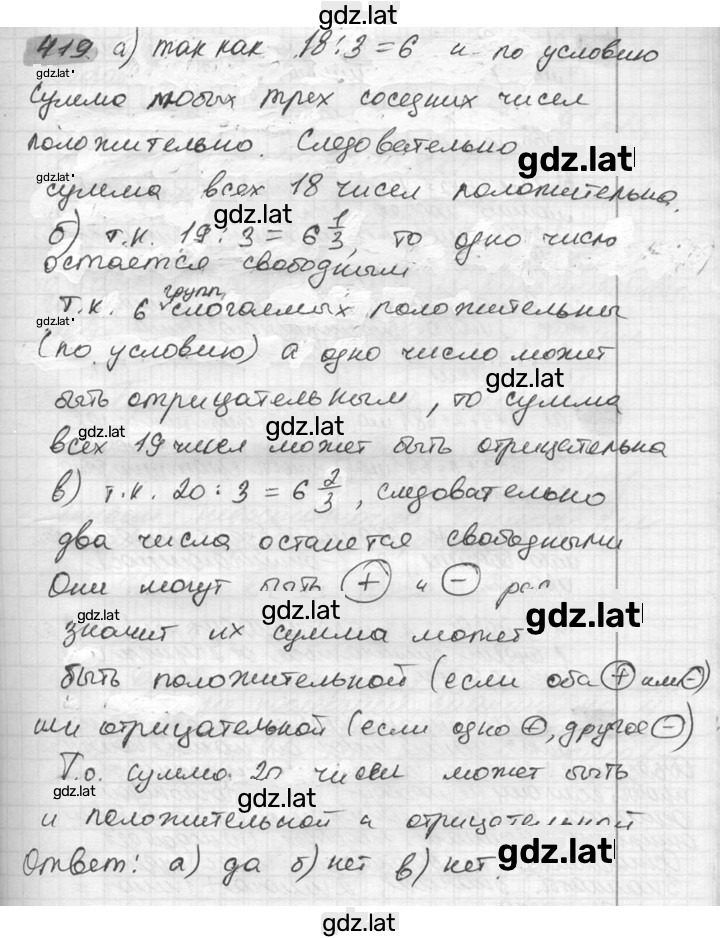 gdz.lat
419. а) так как 18:3=6 и по условию
gdz.lat
сумма любых трех соседних чисел
положительно. Следовательно
gdz.lat
gdz.lat
сумма всех 18 чисел положительна.
gdz.lat
б) т.к. 19:3=6 1/3, то одно число
остается свободным
групп
т.к. 6 слогаемых положительны
gdz.lat
(по условию) а одно число может
gdz.lat
быть отрицательным, то сумма
gdz.lat
всех 19 чисел может быть отрицательна
в) т.к. 20:3=6 2/3, следовательно
два числа останется свободными
Они могут быть + и -
gdz.lat
gdz.lat
gdz.lat
значит их сумма может
быть положительной (если оба + или -)
или отрицательной (если одно +, другое -)
Т.о. сумма 20 чисел может быть
gdz.lat
gdz.lat
и положительной и отрицательной
Ответ: а) да б) нет в) нет.
gdz.lat
gdz.lat